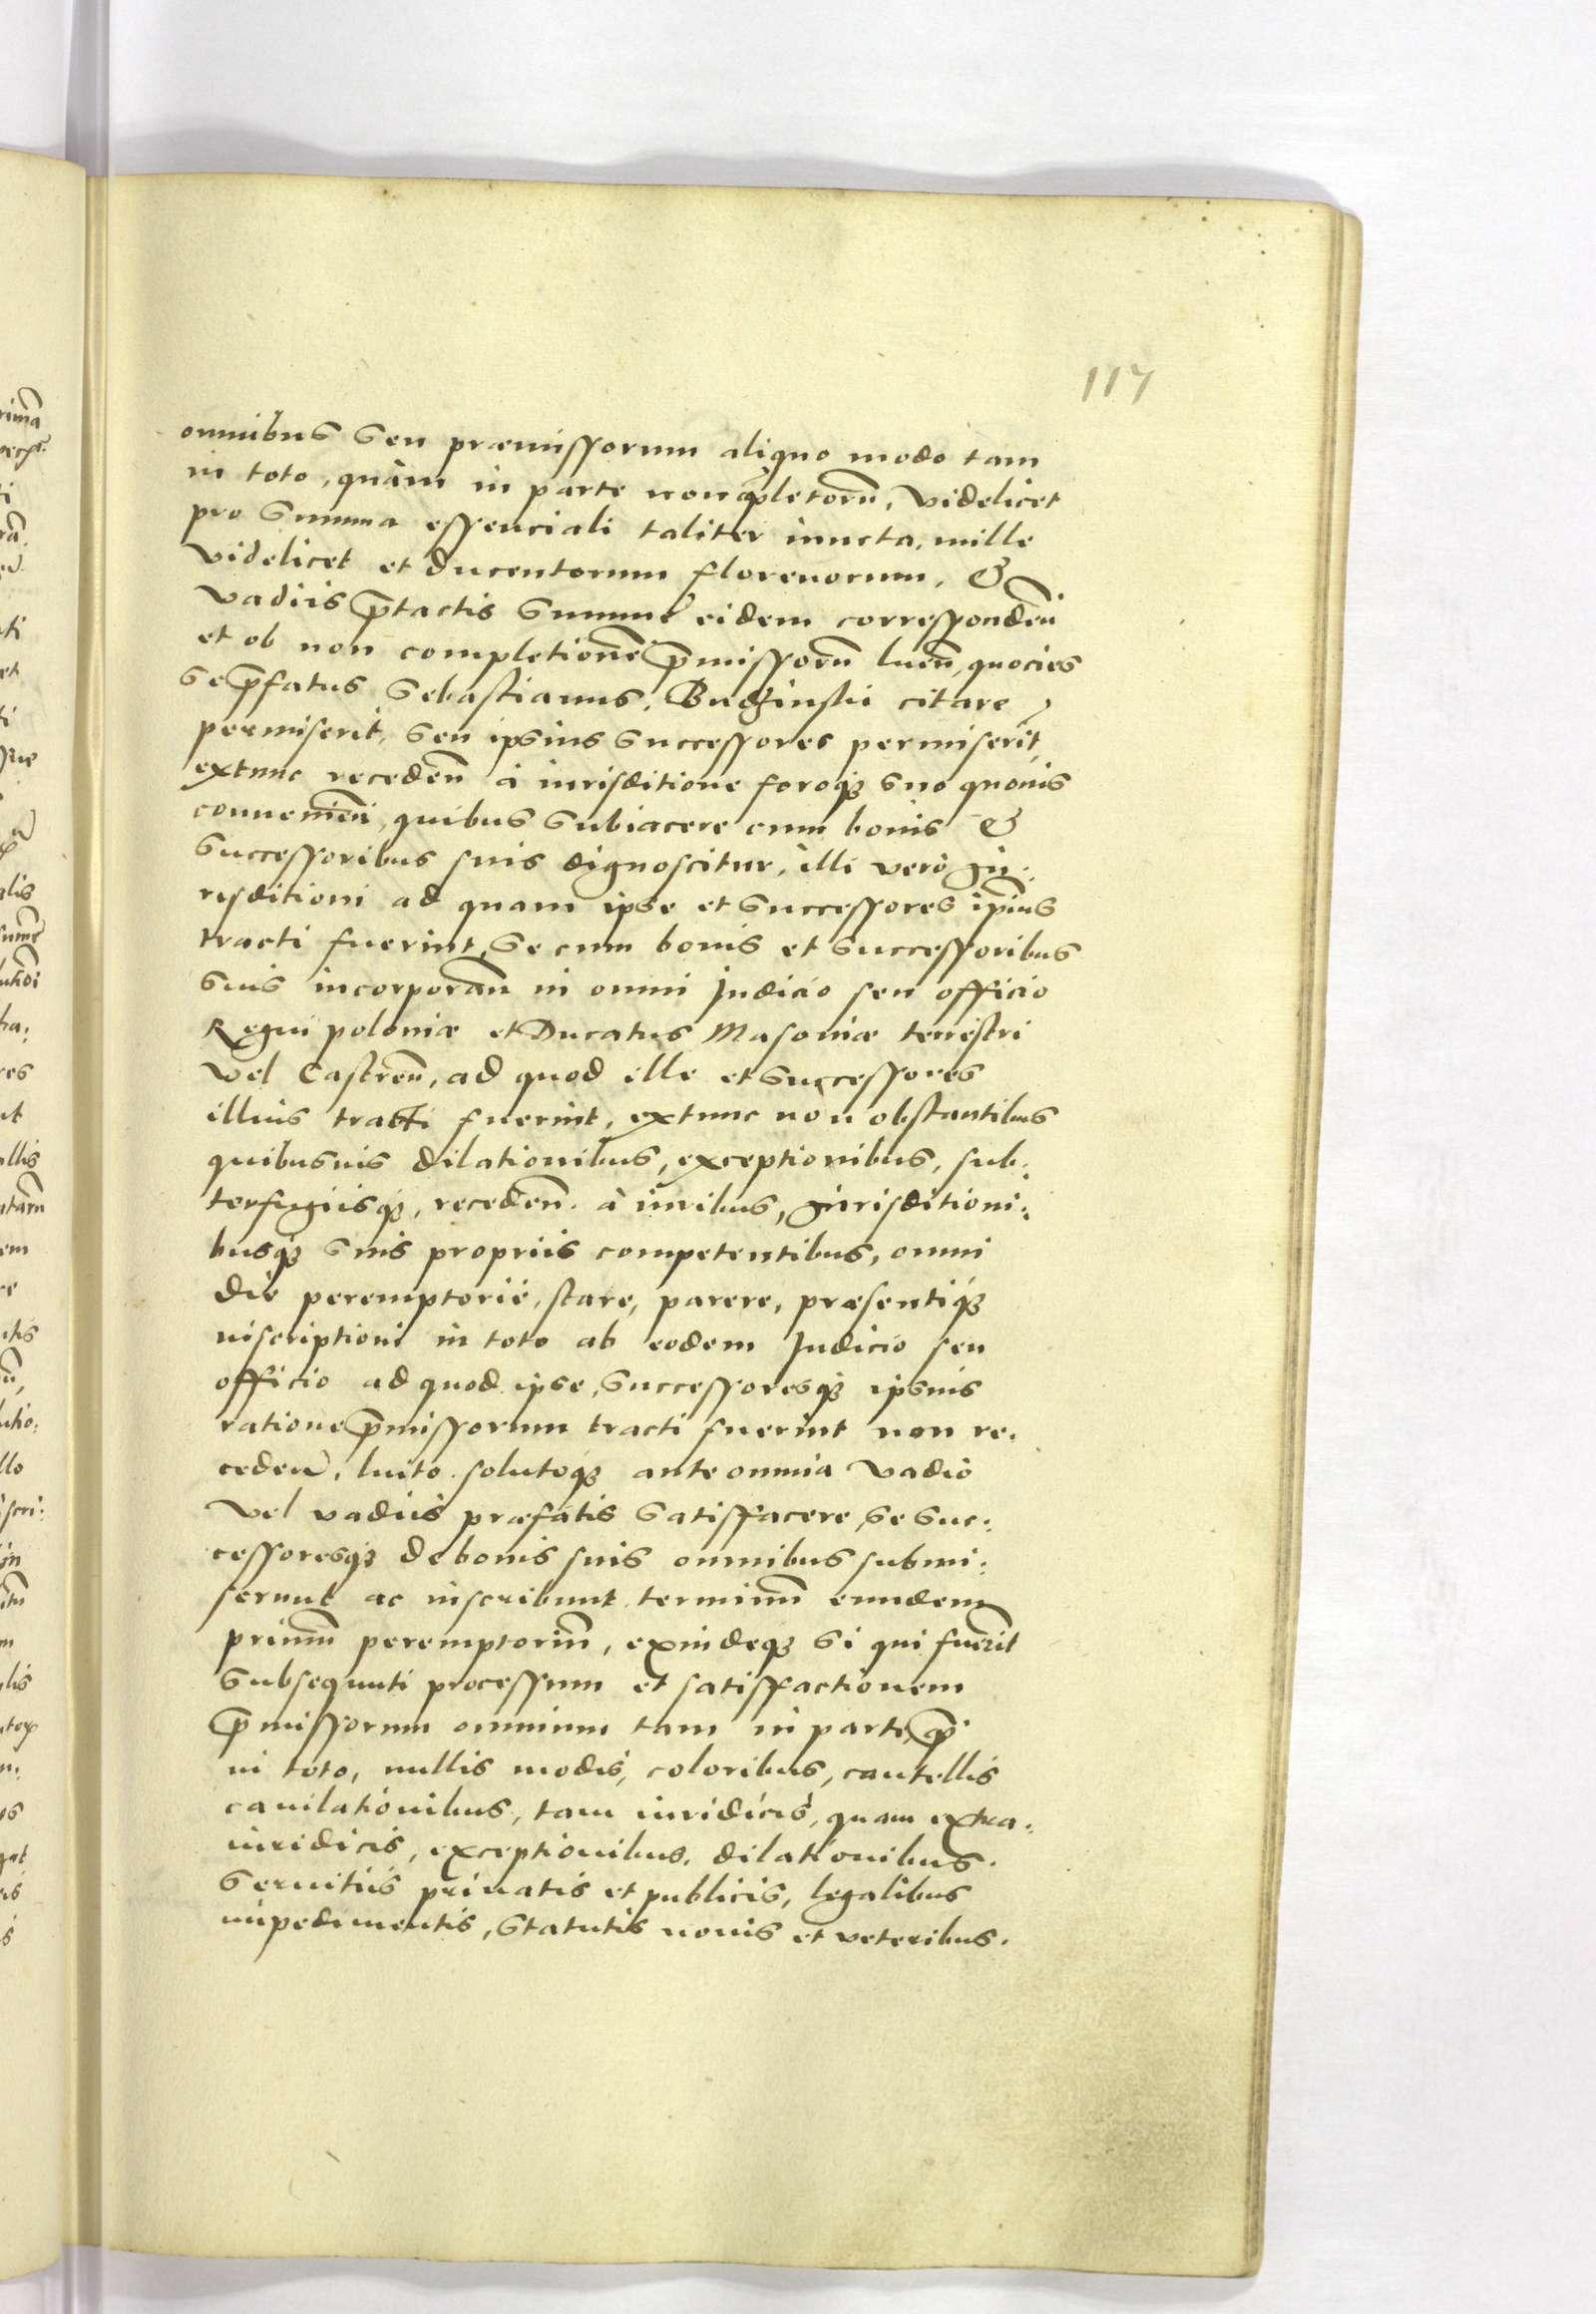 117
omnibus seu præmissorum aliquo modo tam
in toto, quàm in parte non cõpletorũ, videlicet
pro summa essenciali taliter iuncta, mille
videlicet et ducentorum florenorum, &
vadiis p̃tactis summe eidem correspondeñ
et ob non completionẽ p̃missorũ lueñ, quocies
se p̃fatus Sebastianus citare
permiserit, seu ipsius successores permiserĩt,
extunc recedeñ à iurisditione foroqꝫ suo quouis
conuenieñ, quibus subiacere cum bonis &
successoribus suis dignoscitur, illi verò Ju:
risditioni ad quam ipse et successores ip̃ius
tracti fuerint, se cum bonis et successoribus
suis incorporañ in omni Judicio seu officio
Regni poloniæ et Ducatus Masouiæ terrestri
vel Castreñ, ad quod ille et successores
illius tracti fuerint, extunc non obstantibus
quibusuis dilationibus, exceptionibus, sub:
terfugiisqꝫ, recedeñ. à iuribus, Jurisditioni:
busqꝫ suis propriis competentibus, omni
die peremptoriè, stare, parere, præsentiqꝫ
inscriptioni in toto ab eodem Judicio seu
officio ad quod ipse, successoresqꝫ ipsius
ratione p̃missorum tracti fuerint non re:
cedeñ, luito solutoqꝫ ante omnia vadio
vel vadiis præfatis satisfacere, se suc:
cessoresqꝫ de bonis suis omnibus submi:
serunt ac inscribunt terminũ eundem
primũ peremptoriũ, exindeqꝫ si qui fuerĩt
subsequuti processum et satisfactionem
p̃missorum omnium tam in parte q̃
in toto, nullis modis, coloribus, cautellis
cauilationibus, tam iuridicis, quam extra:
iuridicis, exceptionibus, dilationibus.
seruitiis priuatis et publicis, legalibus
impedimentis, statutis nouis et veteribus.